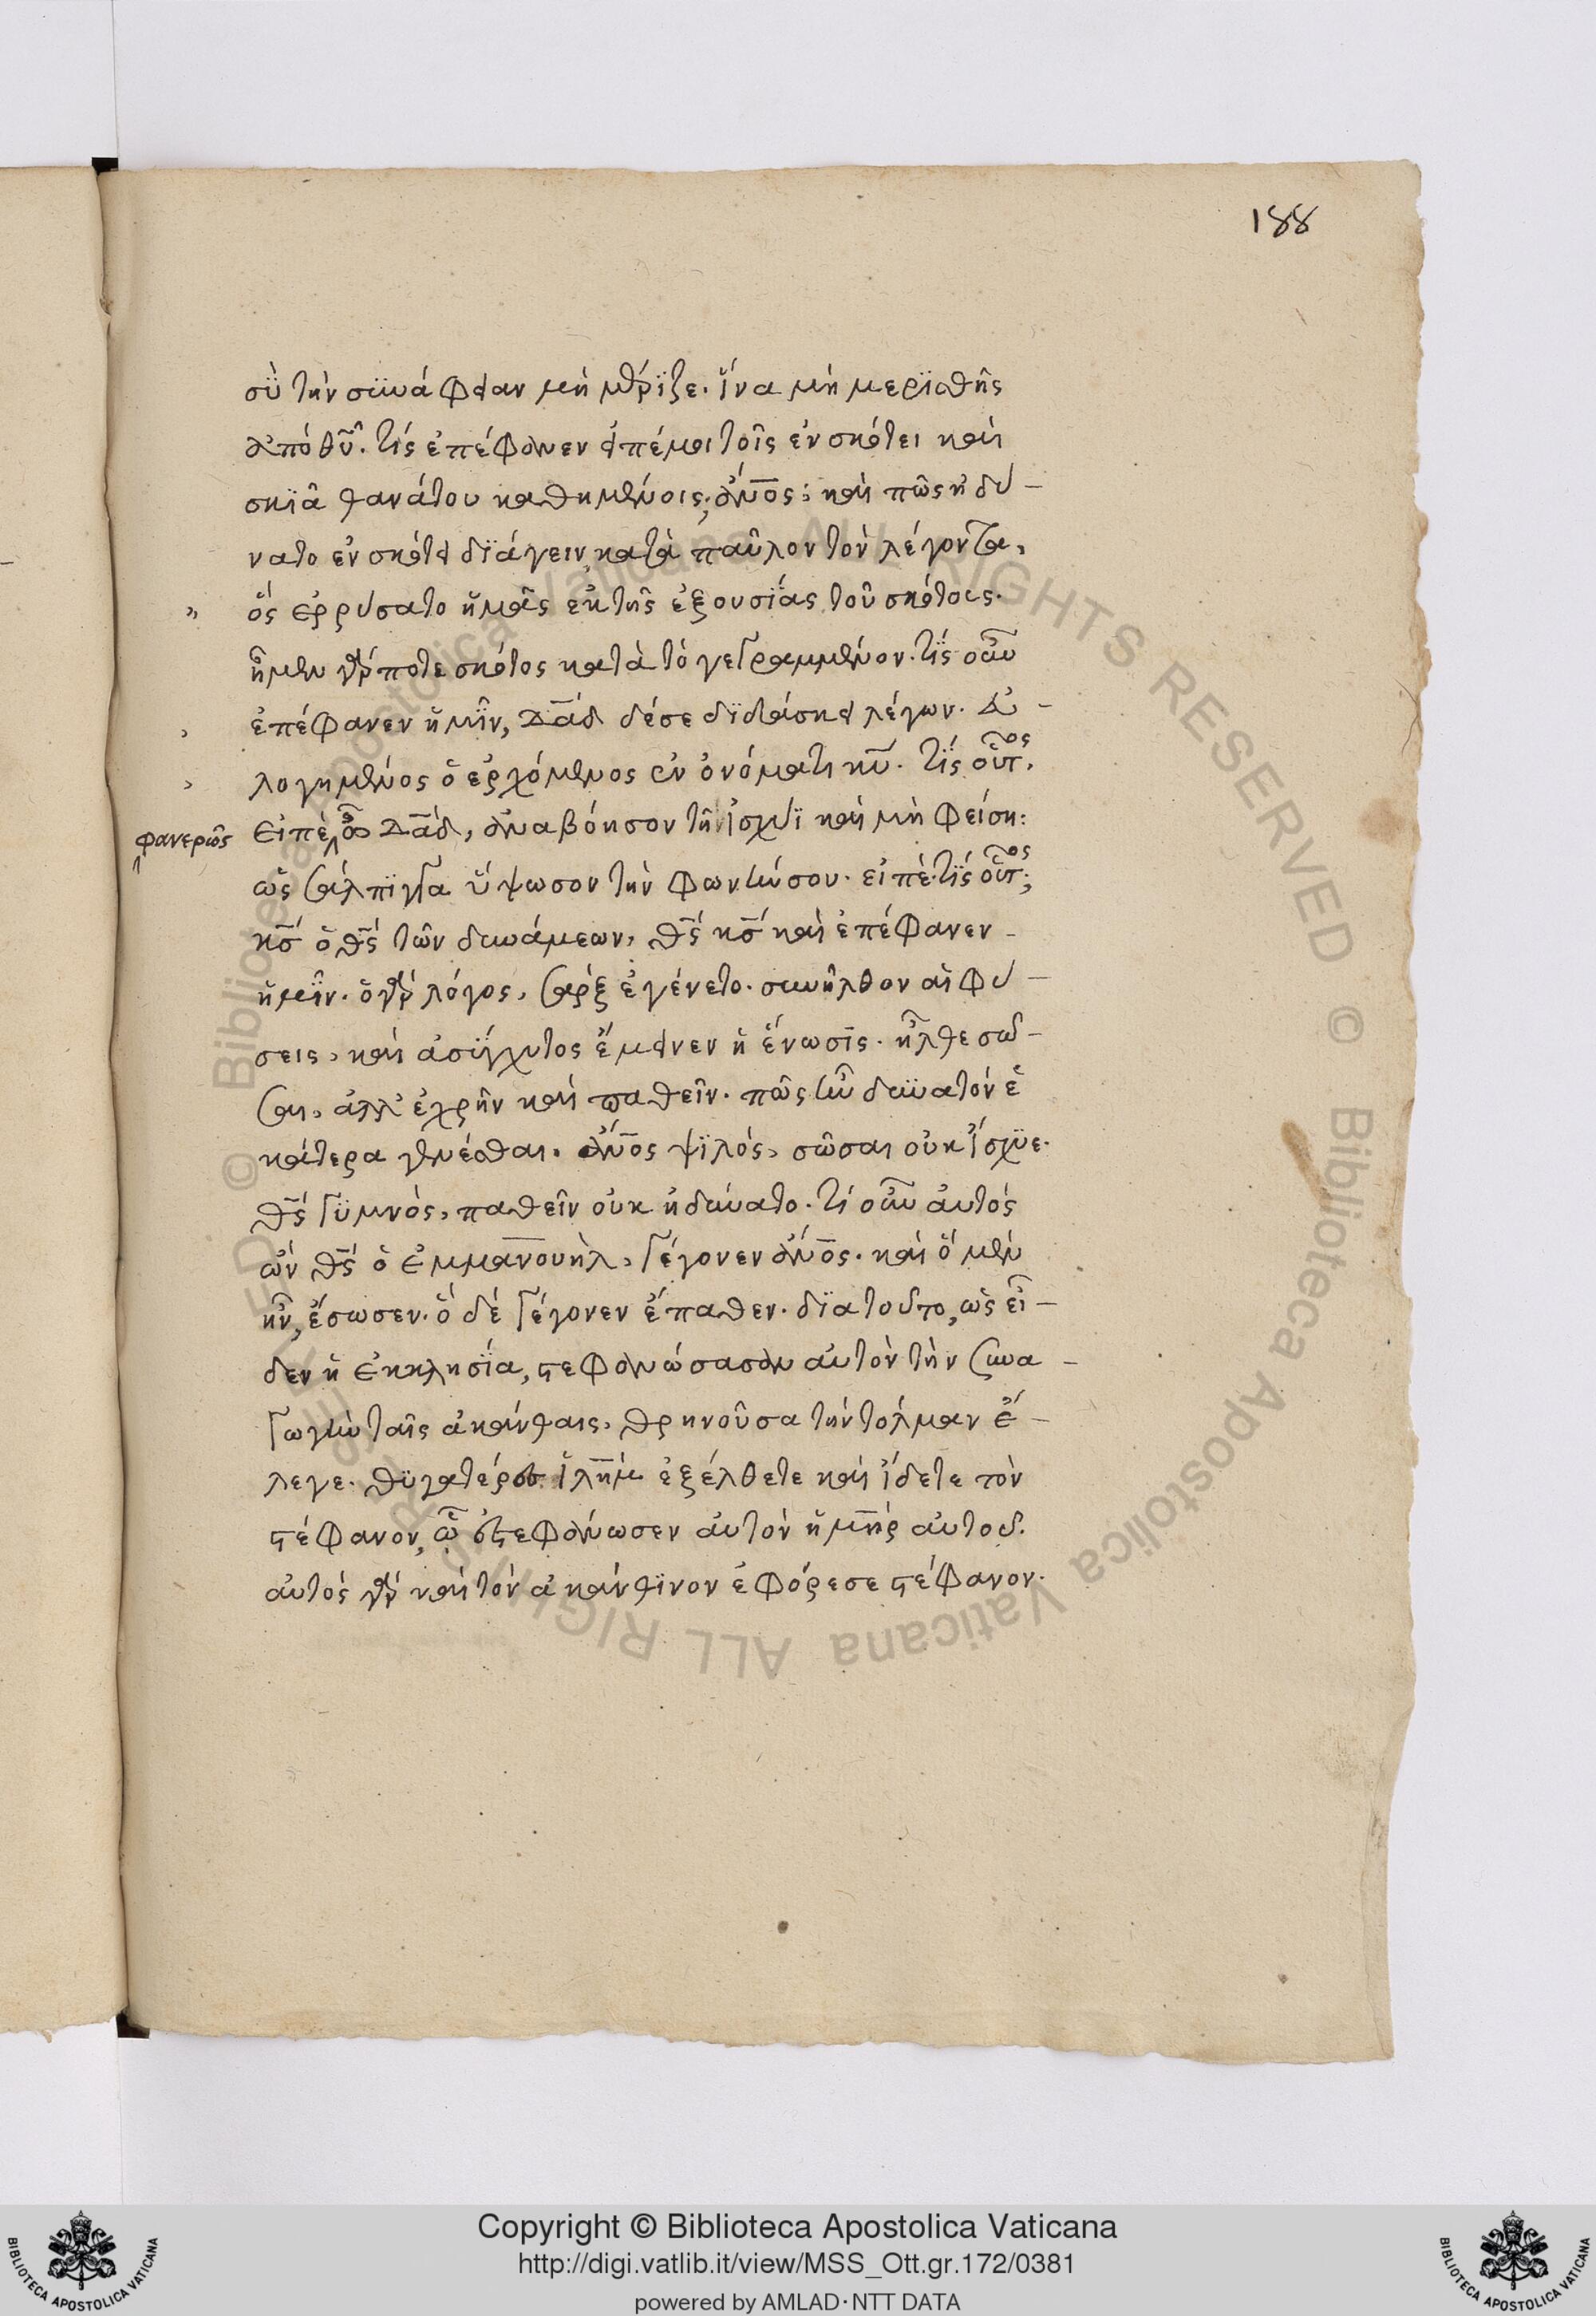 188
σὺ τὴν συνάφειαν μὴ μέριζε. ἵνα μὴ μερισθῇς
ἀπὸ θῦ. τίς ἐπέφανεν ἐπέμοι τοῖς ἐν σκότει καὶ
σκιᾷ θανάτου καθημένοις; ἄνος; καὶ πῶς ἠδύ-
νατο ἐν σκότει διάγειν κατὰ παῦλον τὸν λέγοντα,
ὃς ἐρρύσατο ἡμᾶς ἐκ τῆς ἐξουσίας τοῦ σκότους.
ἦμεν γάρ ποτε σκότος κατὰ τὸ γεγραμμένον. τίς οὖν
ἐπέφανεν ἡμῖν, δᾱδ δέ σε διδάσκει λέγων. εὐ-
λογημένος ὁ ἐρχόμενος ἐν ὀνόματι κῡ. τίς οὗτος.
φανερῶς
εἰπὲ ὦ δᾱδ, ἀναβόησον τῇ ἰσχύϊ καὶ μὴ φείση:
ὡς σάλπιγγα ὕψωσον τὴν φωνήν σου. εἰπὲ. τίς οὗτος;
κς̄ ὁ θς̄ τῶν δυνάμεων, θς̄ κς̄ καὶ ἐπέφανεν
ἡμῖν. ὁ γὰρ λόγος, σὰρξ ἐγένετο. συνῆλθον αἱ φύ-
σεις, καὶ ἀσύγχυτος ἔμεινεν ἡ ἕνωσις. ἦλθε σῶ-
σαι, ἀλλ' ἐχρῆν καὶ παθεῖν. πῶς ἦν δυνατόν ἑ
κάτερα γενέσθαι. ἄνος ψιλός, σῶσαι οὐκ ἴσχυε.
θς̄ γυμνὸς, παθεῖν οὐκ ἠδύνατο. τί οὖν αὐτὸς
ὢν θς̄ ὁ ἐμμανουὴλ, γέγονεν ἄνος. καὶ ὃ μὲν
ἦν, ἔσωσεν. ὃ δὲ γέγονεν ἔπαθεν. διατοῦτο, ὡς εἶ-
δεν ἡ ἐκκλησία, στεφανώσασαν αὐτὸν τὴν συνα-
γωγὴν ταῖς ἀκάνθαις, θρηνοῦσα τὴν τόλμαν ἔ-
λεγε. θυγατέρες ἰλῆμ ἐξέλθετε καὶ ἴδετε τὸν
στέφανον, ᾧ ἐστεφάνωσεν αὐτὸν ἡ μῆρ αὐτοῦ.
αὐτὸς γὰρ καὶ τὸν ἀκάνθινον ἐφόρεσε στέφανον.
Copyright © Biblioteca Apostolica Vaticana
http://digi.vatlib.it/view/MSS_Ott.gr.172/0381
powered by AMLAD·NTT DATA